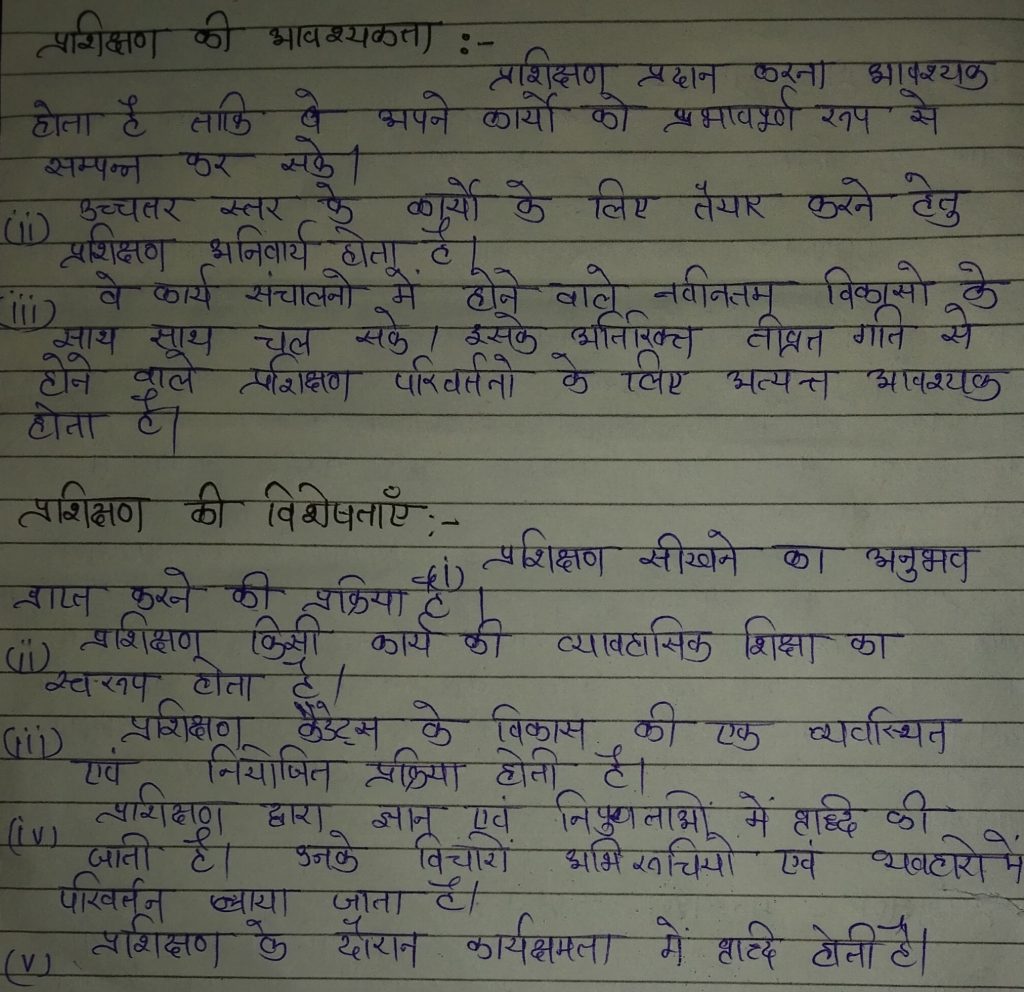 प्रशिक्षण की आवश्यकता :-
प्रशिक्षण प्रदान करना आवश्यक
होता है ताकि वे अपने कार्यो को प्रभावपूर्ण रूप से
सम्पन्न कर सके।
(ii) उच्चतर स्तर के कार्यो के लिए तैयार करने हेतु
प्रशिक्षण अनिवार्य होता है।
(iii) वे कार्य संचालनो में होने वाले नवीनतम विकासो के
साथ साथ चल सके। इसके अतिरिक्त तीव्रत गति से
होने वाले प्रशिक्षण परिवर्तनो के लिए अत्यन्त आवश्यक
होता है।
प्रशिक्षण की विशेषताएँ :-
(i) प्रशिक्षण सीखने का अनुभव
प्राप्त करने की प्रक्रिया है।
(ii) प्रशिक्षण किसी कार्य की व्यावहासिक शिक्षा का
स्वरूप होता है।
(iii) प्रशिक्षण कैडेट्स के विकास की एक व्यवस्थित
एवं नियोजित प्रक्रिया होती है।
(iv) प्रशिक्षण द्वारा ज्ञान एवं निपुणताओं में वृद्धि की
जाती है। उनके विचारों अभिरूचियो एवं व्यवहारो में
परिवर्तन लाया जाता है।
(v) प्रशिक्षण के दौरान कार्यक्षमता में वृद्धि होती है।